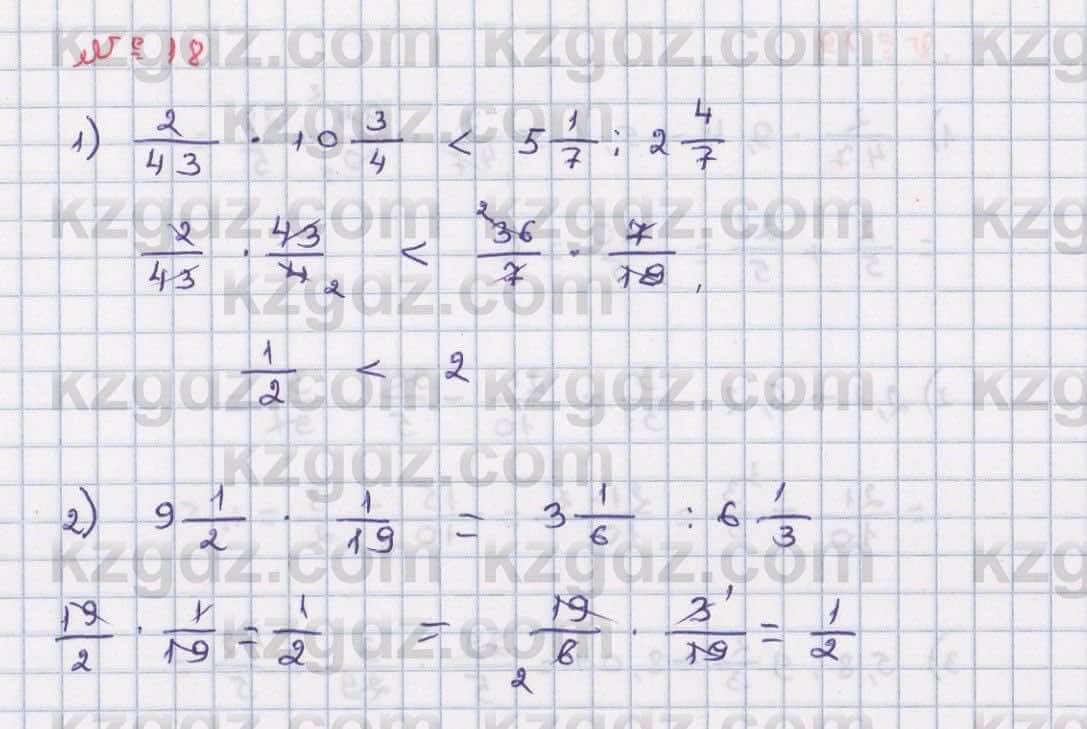 № 18
1) 2/43 · 10 3/4 < 5 1/7 : 2 4/7
2/43 · 43/4 2 < 2 36/7 · 7/18,
1/2 < 2
2) 9 1/2 · 1/19 = 3 1/6 : 6 1/3
19/2 · 1/19 = 1/2 = 19/6 2 · 3 1/19 = 1/2
kzgdz.com